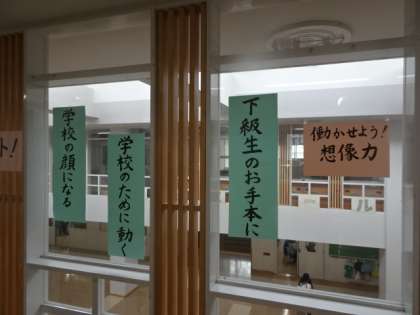 下級生のお手本に
働かせよう!
想像力
学校のために動く
学校の顔になる
ト!
ール